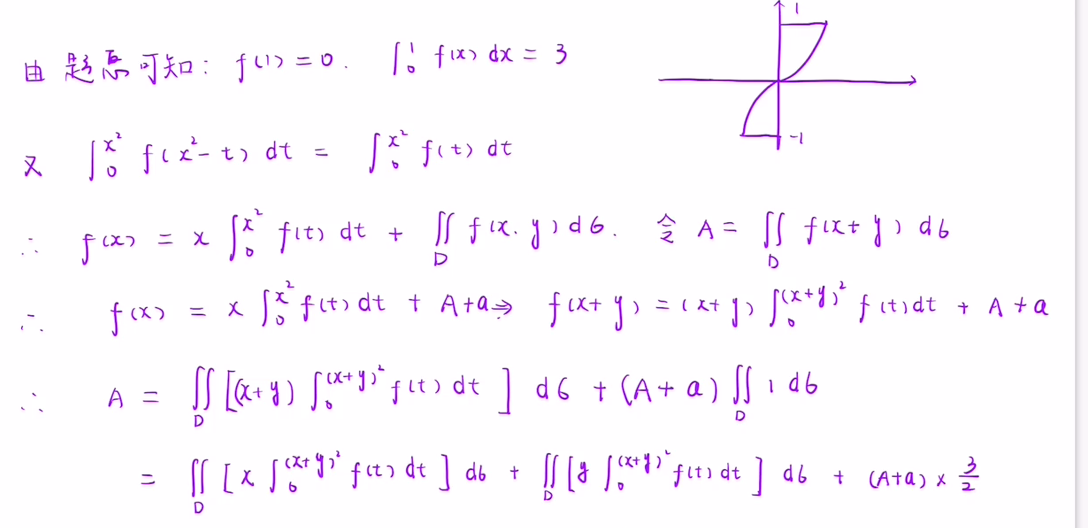 由题意可知: f(1)=0. ∫₀¹ f(x) dx = 3
1
-1
又 ∫₀^{x²} f(x²-t) dt = ∫₀^{x²} f(t) dt
∴ f(x) = x ∫₀^{x²} f(t) dt + ∬_D f(x.y) dσ. 令 A = ∬_D f(x+y) dσ
∴ f(x) = x ∫₀^{x²} f(t) dt + A+a ⇒ f(x+y) = (x+y) ∫₀^{(x+y)²} f(t) dt + A+a
∴ A = ∬_D [(x+y) ∫₀^{(x+y)²} f(t) dt] dσ + (A+a) ∬_D 1 dσ
= ∬_D [x ∫₀^{(x+y)²} f(t) dt] dσ + ∬_D [y ∫₀^{(x+y)²} f(t) dt] dσ + (A+a) × 3/2